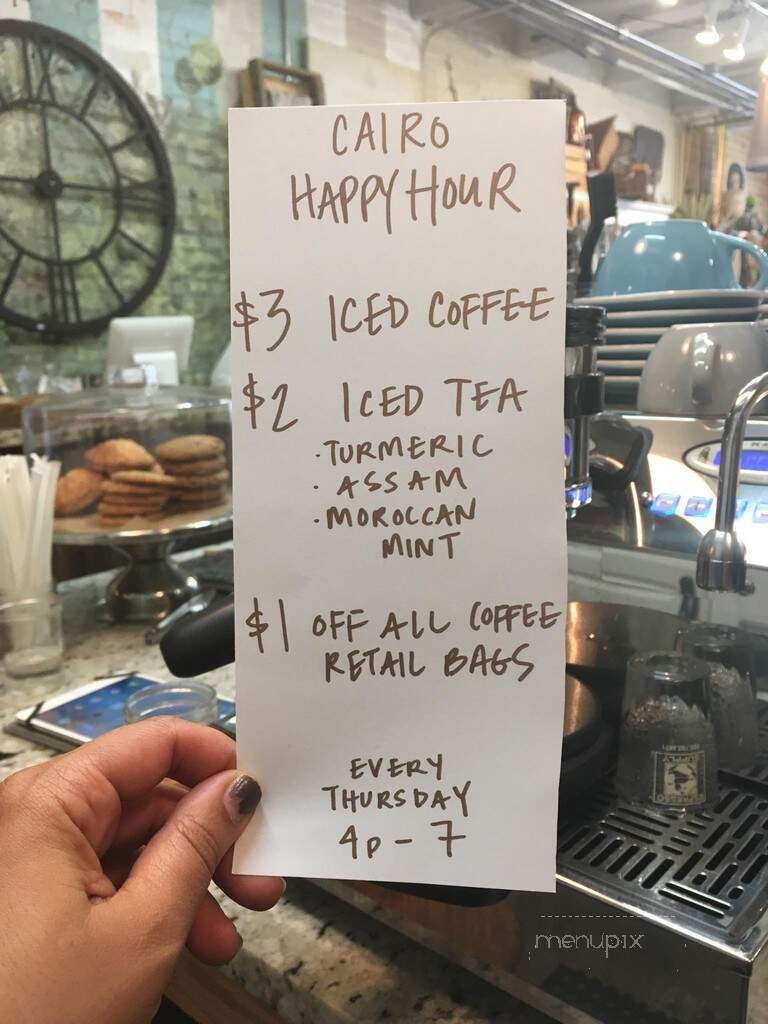 CAIRO
HAPPY HOUR
$3 ICED COFFEE
$2 ICED TEA
· TURMERIC
· ASSAM
· MOROCCAN
MINT
$1 OFF ALL COFFEE
RETAIL BAGS
EVERY
THURSDAY
4p - 7
menupix